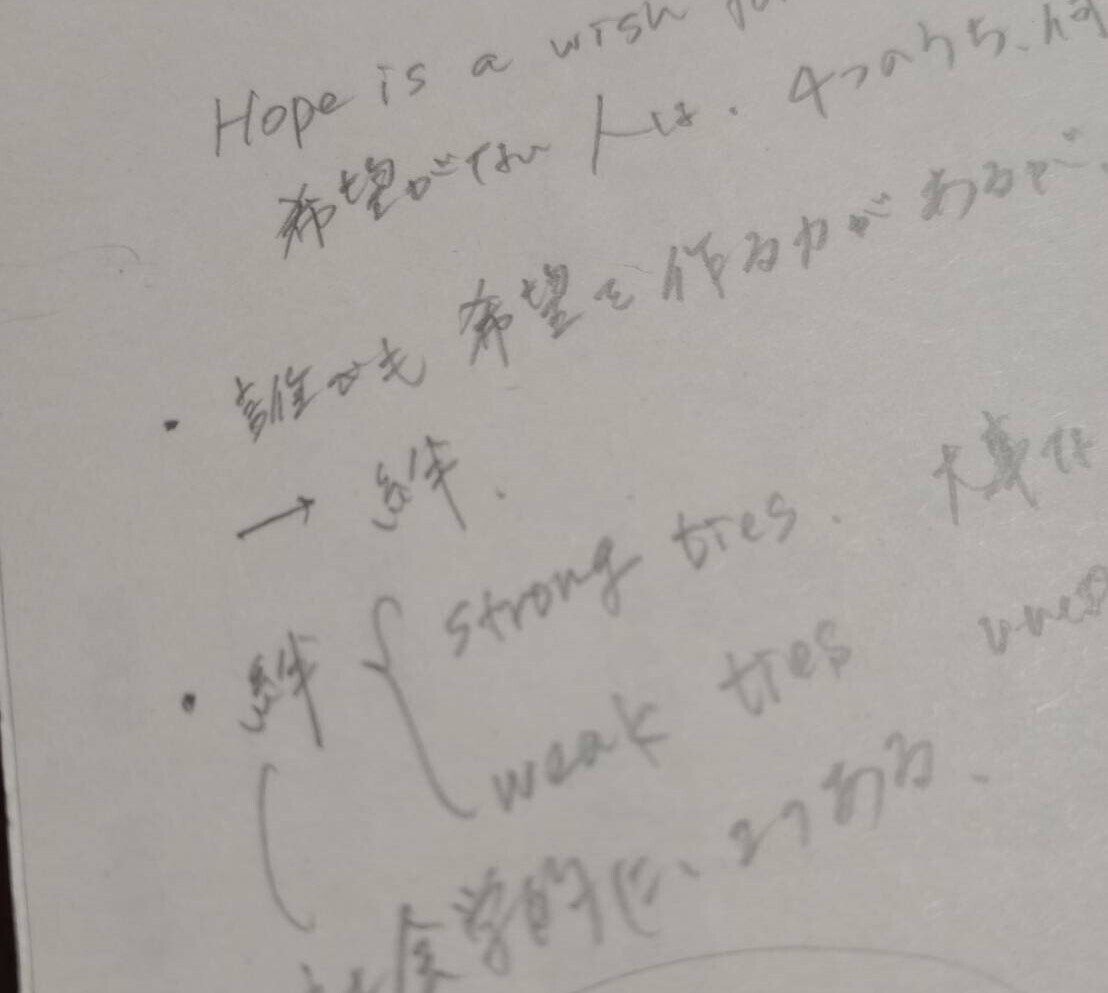 Hope is a wish
希望がない人は、4つのうち、何
・誰でも希望を作る力があるが、
→ 絆.
・絆 { strong ties. 大事
weak ties
社会学的に、2つある、